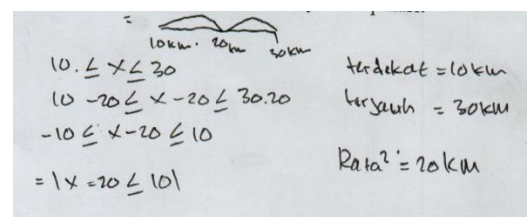 =
10km. 20km 30km
10. ≤ x ≤ 30
10 -20 ≤ x -20 ≤ 30.20
-10 ≤ x-20 ≤ 10
= | x -20 ≤ 10|
terdekat = 10km
terjauh = 30KM
Rata² = 20km